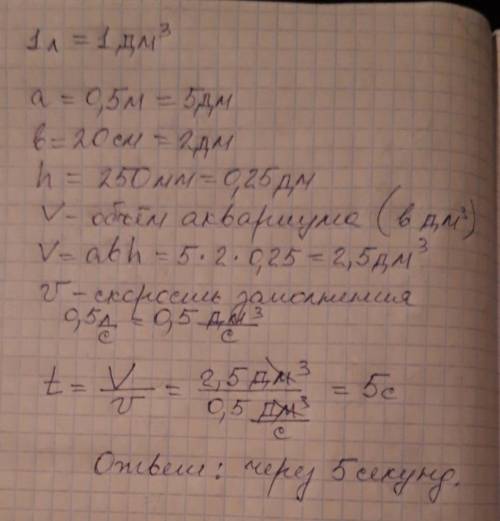 1л = 1дм³
a = 0,5м = 5дм
в = 20см = 2дм
h = 250мм = 0,25дм
V - объём аквариума (в дм³)
V = abh = 5·2·0,25 = 2,5дм³
v - скорость заполнения
0,5 л/с = 0,5 дм³/с
t = V/v = 2,5 дм³ / 0,5 дм³/с = 5с
Ответ: через 5 секунд.